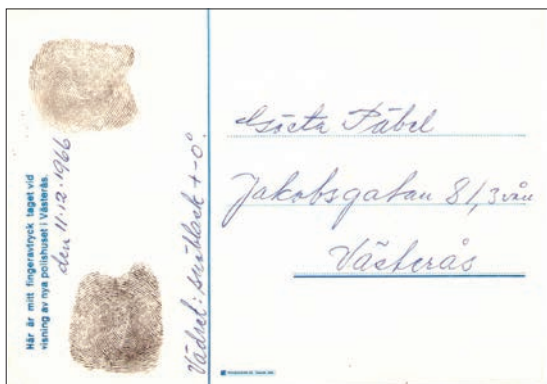 Här är mitt fingeravtryck taget vid
visning av nya polishuset i Västerås.
den 11.12.1966
Vädret: snöblask +-0°
Gösta Päbel
Jakobsgatan 81, 3 vån
Västerås